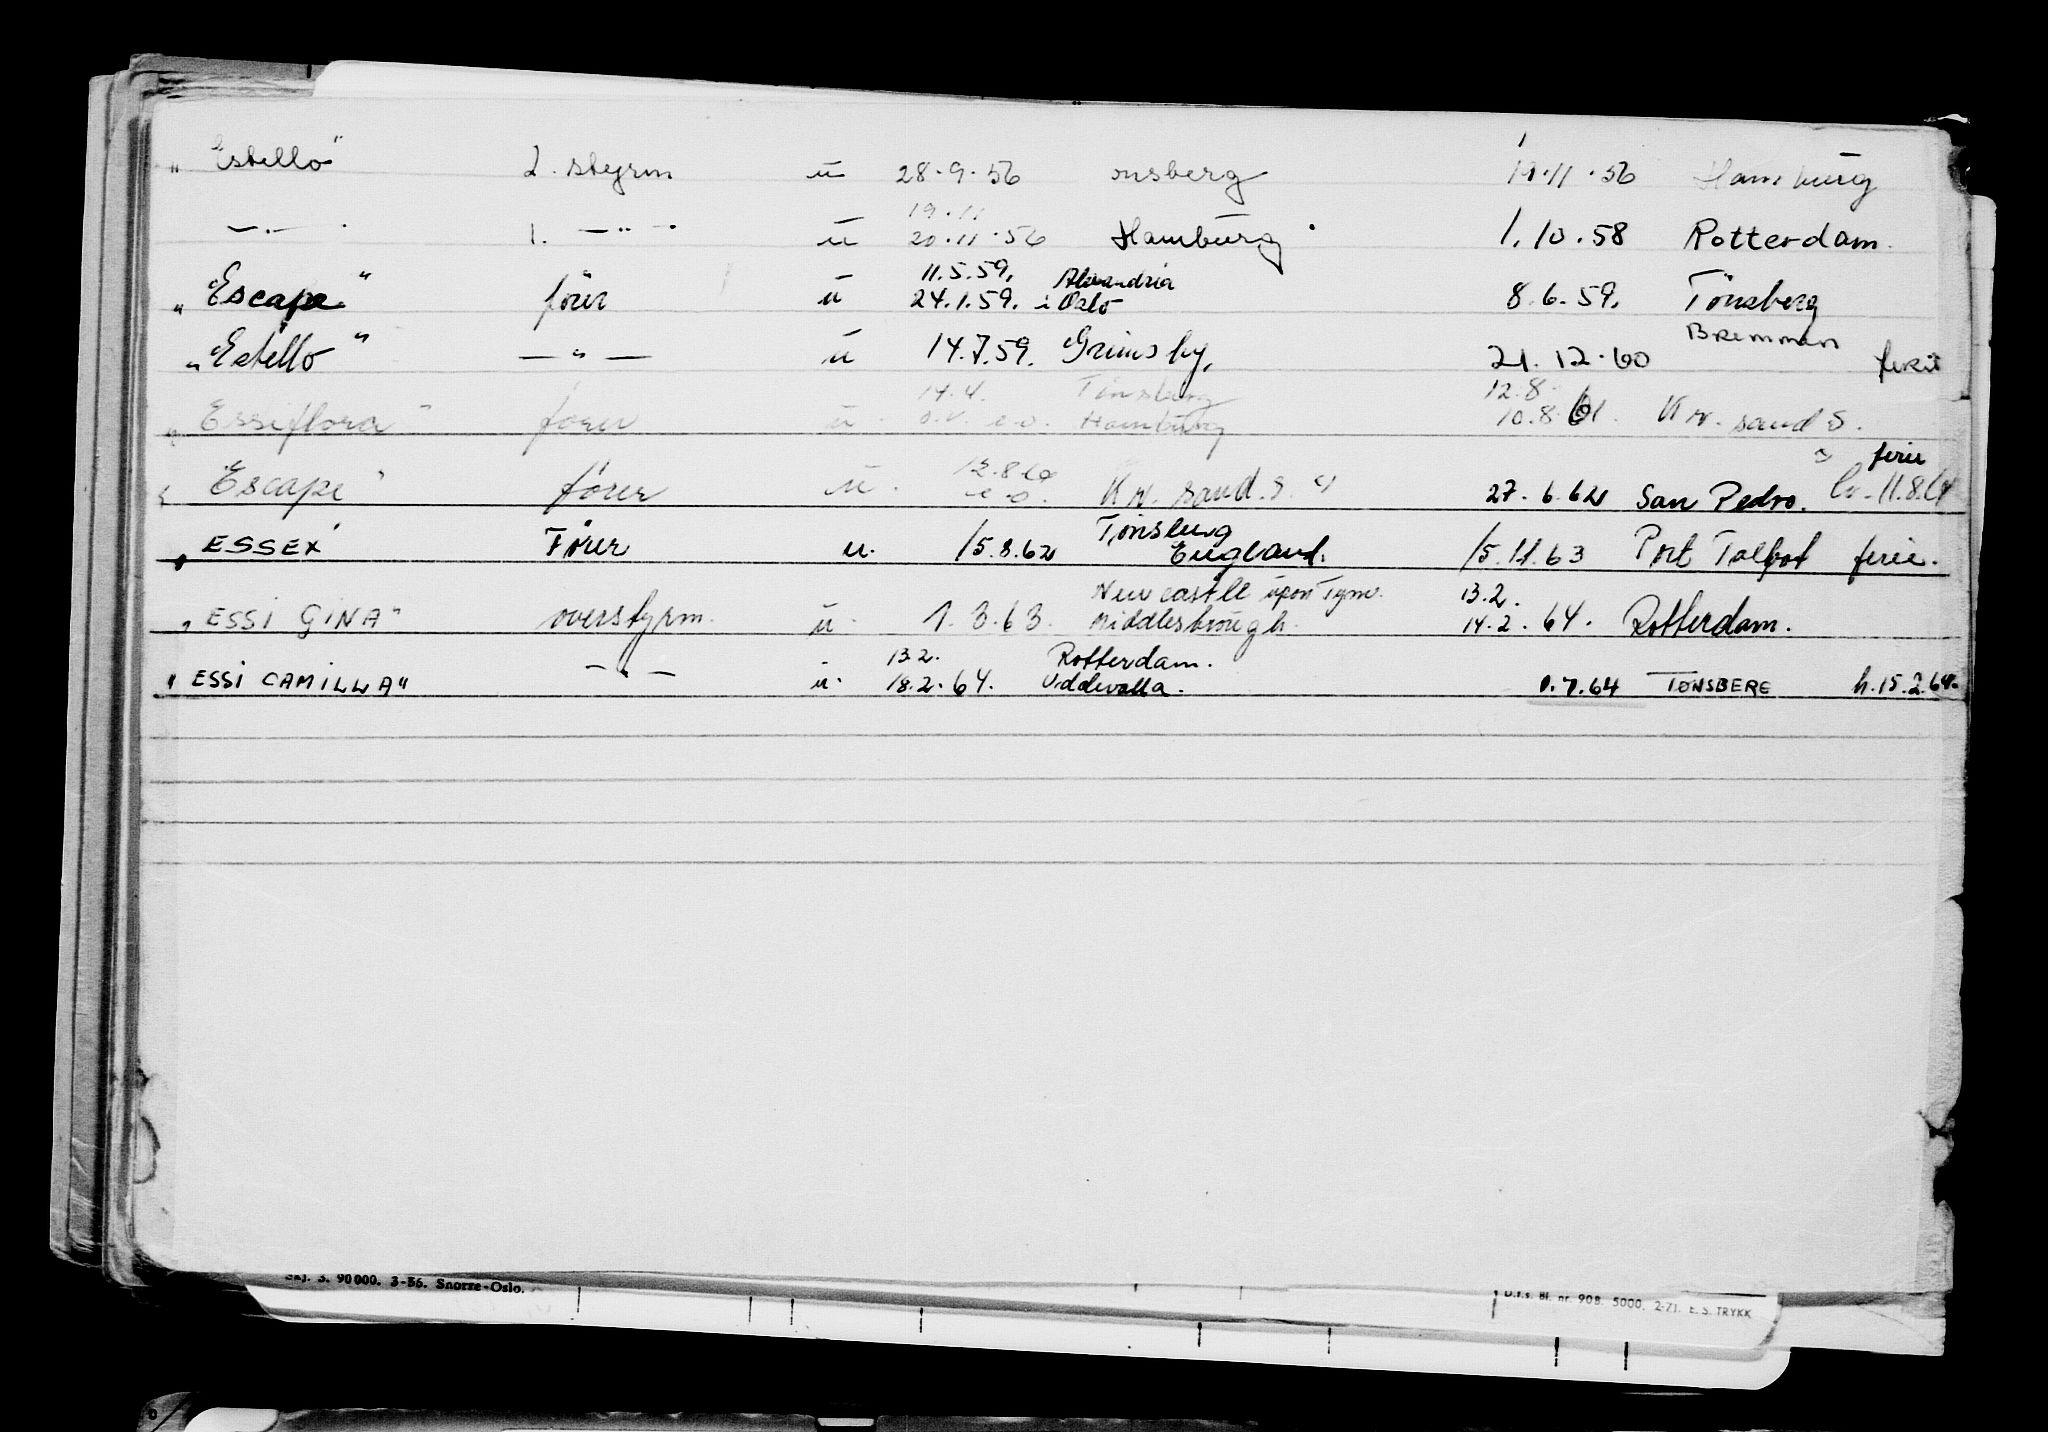 " Estello" 2. styrm u 28.9.56 onsberg 11.56 Hamburg
19.11
—"— 1. —"— u 20.11.56 Hamburg 1.10.58 Rotterdam.
11.5.59. Alexandria
" Escape" förer u 24.1.59. i Oslo 8.6.59. Tönsberg
Bremmen
"Estello" —"— u 14.7.59. Grimsby, 21.12.60 ferie
14.4. Tönsberg 12.8
" Essiflora" förer u Hamburg 10.8.61. Kr. sand S.
12.8 ferie
" Escape" förer u. Kr. sand. S. 27.6.62 San Pedro. 11.8.61
Tönsberg
" ESSEX Förer u. 15.8.62 England. 15.11.63 Port Talbot ferie.
New castle upon Tyne. 13.2.
" ESSI GINA" overstyrm. u. 1.3.63. Middlesbrough. 14.2.64. Rotterdam.
13.2. Rotterdam.
" ESSI CAMILLA" —"— u. 18.2.64. Uddevalla. .7.64 TØNSBERG h.15.2.64.
3. 90000. 3-56. Snorre-Oslo.
D.f.s. Bl. nr. 90B. 5000. 2-71. E. S. TRYKK